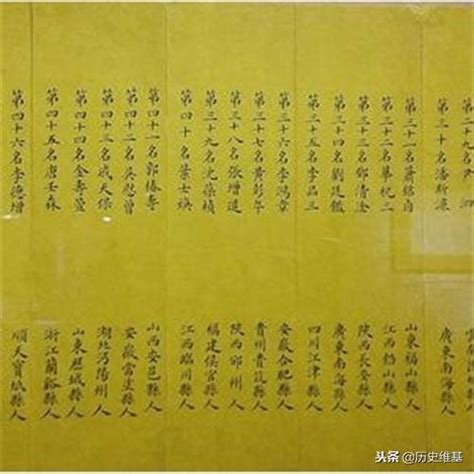 第三十名潘斯濂 廣東南海縣人
第三十一名蕭銘卣 山東福山縣人
第三十二名華祝三 江西鉛山縣人
第三十三名鄧清淦 陝西長安縣人
第三十四名劉廷鑑 廣東南海縣人
第三十五名李品三 四川江津縣人
第三十六名李鴻章 安徽合肥縣人
第三十七名黃彭年 貴州貴筑縣人
第三十八名張增道 陝西邠州人
第三十九名沈葆楨 福建侯官縣人
第四十名葉士煥 江西臨川縣人
第四十一名郭椿壽 山西安邑縣人
第四十二名吳慰曾 安徽當塗縣人
第四十三名成天保 湖北沔陽州人
第四十四名金壽萱 山東歷城縣人
第四十五名唐壬森 浙江蘭谿縣人
第四十六名李德增 順天寶坻縣人
头条 @历史维基